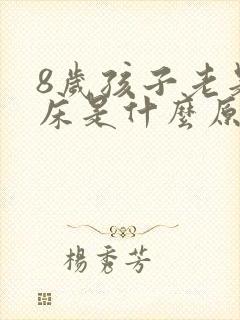 8歲孩子老是
床是什麼原
楊秀芳